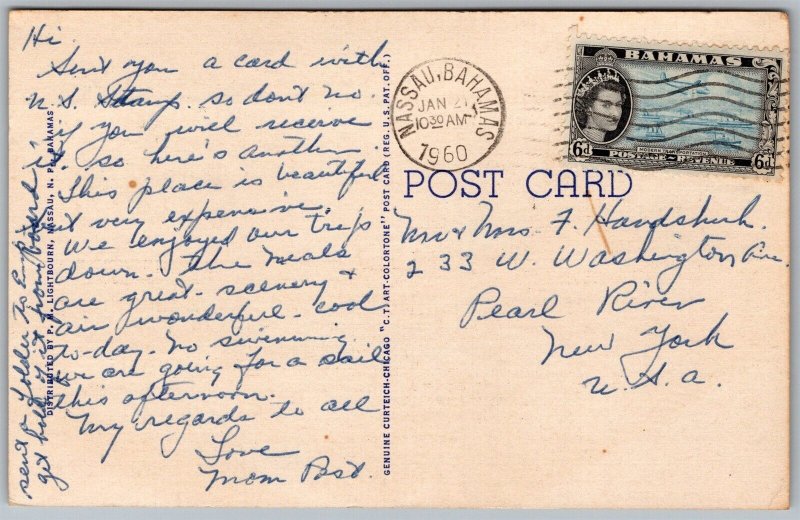 Hi.
Sent you a card with
U.S. Stamp. so don't no.
if you will receive
it. so here's another.
This place is beautiful
but very expensive.
We enjoyed our trip
down. The meals
are great - scenery &
air wonderful - cool
to-day - no swimming
we are going for a sail
this afternoon.
My regards to all
Love
Mom Post.
sent a folder to
get hold of it from
DISTRIBUTED BY P. W. LIGHTBOURN, NASSAU, N. P., BAHAMAS
GENUINE CURTEICH-CHICAGO "C.T. ART-COLORTONE" POST CARD (REG. U.S. PAT. OFF.)
NASSAU, BAHAMAS
JAN 21
1030 AM
1960
BAHAMAS
6d
POSTAGE REVENUE
6d
POST CARD
Mr & Mrs. F. Handshuh.
233 W. Washington Ave.
Pearl River
New York
U.S.A.